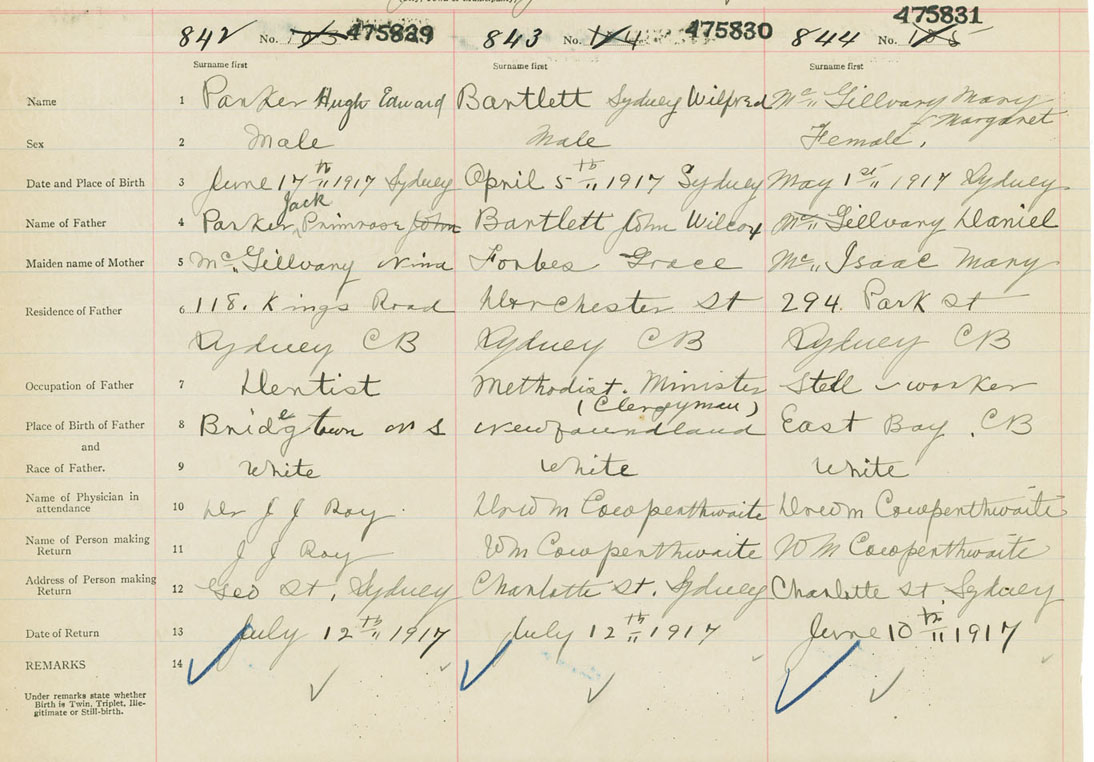 842 No. 475829 843 No. 475830 844 No. 475831
Surname first Surname first Surname first
Name 1 Parker Hugh Edward Bartlett Sydney Wilfred Mc Gillvary Mary Margaret
Sex 2 Male Male Female
Date and Place of Birth 3 June 17th 1917 Sydney April 5th 1917 Sydney May 1st 1917 Sydney
Name of Father 4 Parker, Jack Primrose John Bartlett John Wilcox Mc Gillvary Daniel
Maiden name of Mother 5 Mc Gillvary Nina Forbes Grace Mc Isaac Mary
Residence of Father 6 118. Kings Road Dorchester St 294. Park St
Sydney CB Sydney CB Sydney CB
Occupation of Father 7 Dentist Methodist. Minister Stell worker
(Clergyman)
Place of Birth of Father 8 Bridgetown N S Newfoundland East Bay. CB
and
Race of Father. 9 White White White
Name of Physician in attendance 10 Dr J J Roy Dr Wm Cowpenthwaite Dr Wm Cowpenthwaite
Name of Person making Return 11 J J Roy Wm Cowpenthwaite Wm Cowpenthwaite
Address of Person making Return 12 Geo St, Sydney Charlotte St. Sydney Charlotte St, Sydney
Date of Return 13 July 12th 1917 July 12th 1917 June 10th 1917
REMARKS 14
Under remarks state whether
Birth is Twin, Triplet, Ille-
gitimate or Still-birth.